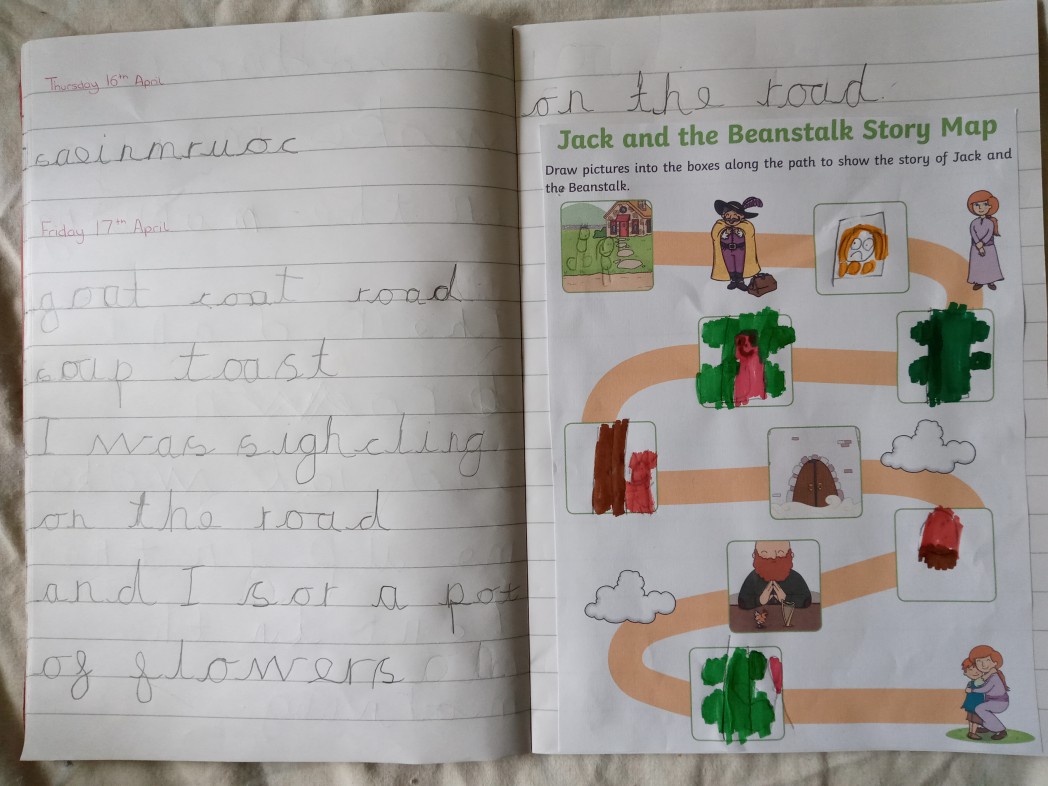 Thursday 16th April
caeinmruoc
Friday 17th April
goat coat road
soap toast
I was sighcling
on the road
and I sor a pot
of flowers
on the road.
Jack and the Beanstalk Story Map
Draw pictures into the boxes along the path to show the story of Jack and
the Beanstalk.